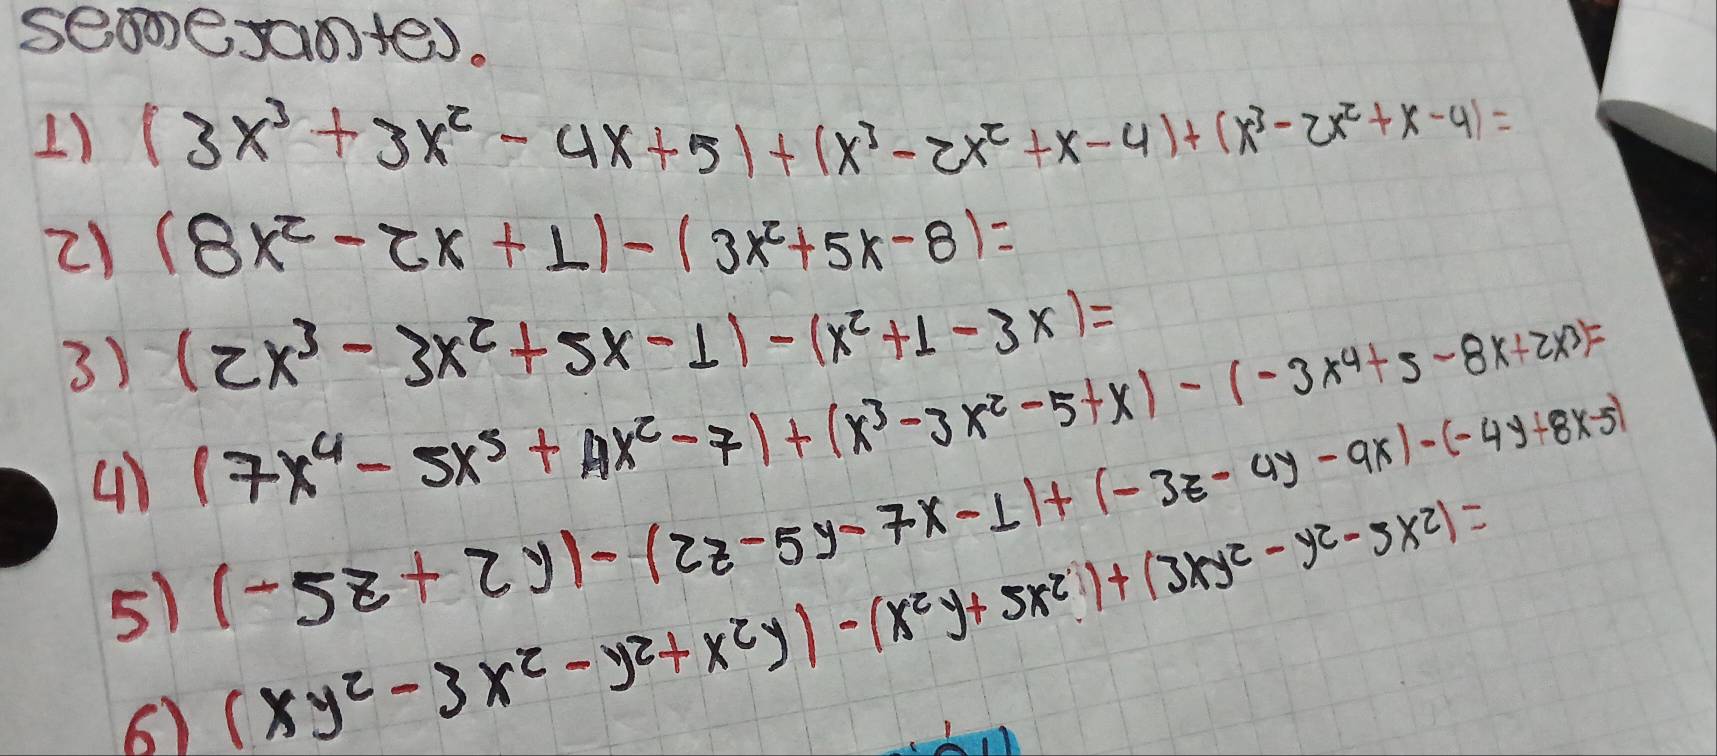 semejantes.
1) (3x³ + 3x² - 4x + 5) + (x³ - 2x² + x - 4) + (x³ - 2x² + x - 4) =
2) (8x² - 2x + 1) - (3x² + 5x - 8) =
3) (2x³ - 3x² + 5x - 1) - (x² + 1 - 3x) =
4) (7x⁴ - 5x⁵ + 4x² - 7) + (x³ - 3x² - 5 + x) - (-3x⁴ + 5 - 8x + 2x³) =
5) (-5z + 2y) - (2z - 5y - 7x - 1) + (-3z - 4y - 9x) - (-4y + 8x - 5)
6) (xy² - 3x² - y² + x²y) - (x²y + 5x²) + (3xy² - y² - 5x²) =